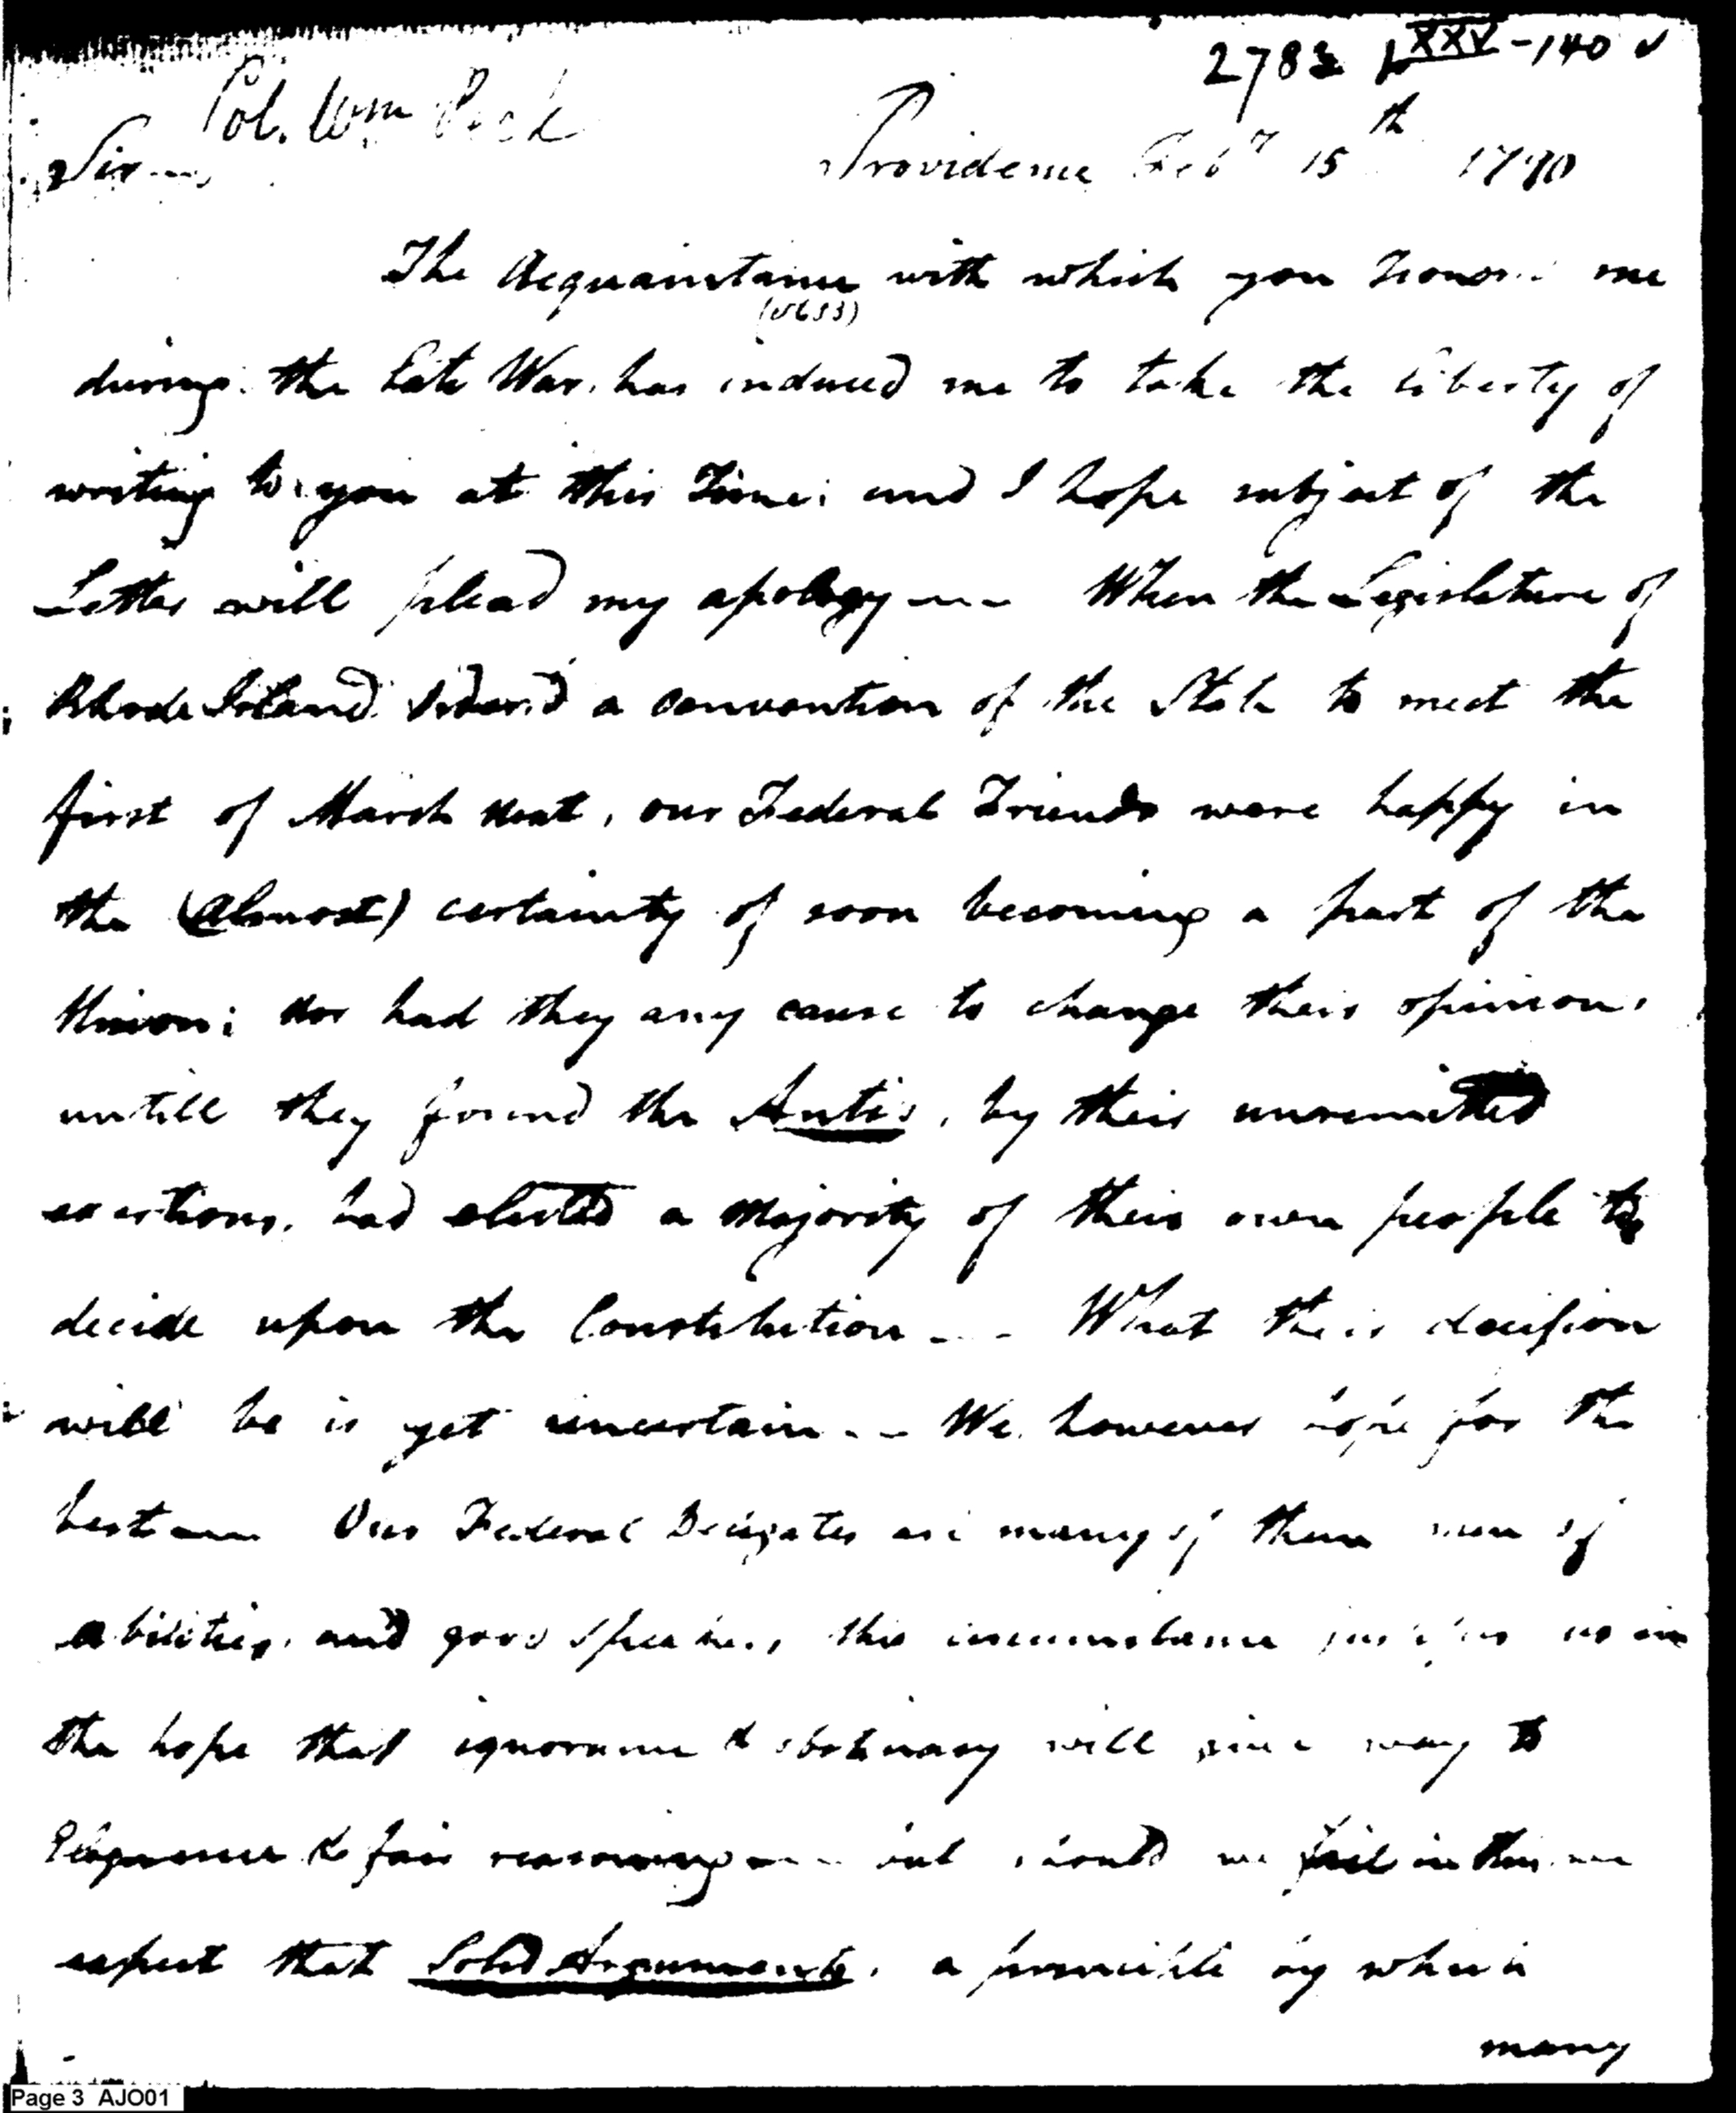 2783 LXXV-140 ✓
Col. Wm Peck
Sir Providence Feby 15th 1790
The Acquaintance with which you honor me
(5653)
during the Late War, has induced me to take the Liberty of
writing to you at this Time; and I hope subject of the
Letter will plead my apology --- When the Legislature of
Rhode Island order'd a convention of the State to meet the
first of March next, our Federal Friends were happy in
the (almost) certainty of soon becoming a part of the
Union; nor had they any cause to change their opinion,
untill they found the Antis, by their unremitted
exertions, had elected a Majority of their own people to
decide upon the Constitution --- What their decision
will be is yet uncertain -- We however hope for the
best --- Our Federal Delegates are many of them men of
abilities, and good speakers, this circumstance justifies us in
the hope that ignorance & obstinacy will give way to
Eloquence & fair reasoning --- but should we fail in this, we
expect that Solid Arguments, a principle by which
many
Page 3 AJO01